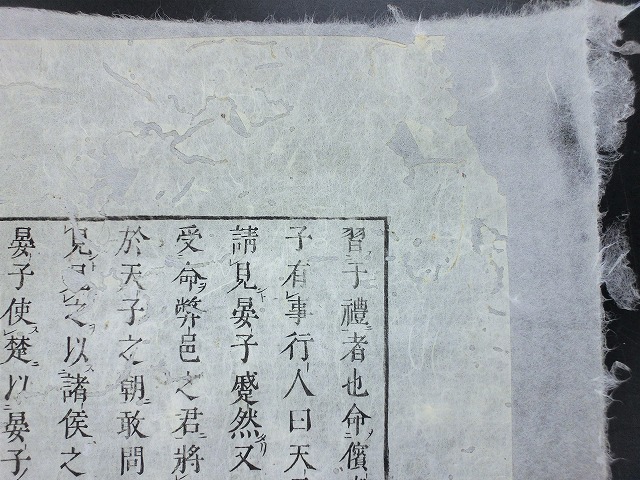 習于禮者也命儐
子有事行人曰天
請見晏子蹙然又
受命弊邑之君將
於天子之朝敢問
見之以諸侯之
晏子使楚以晏子